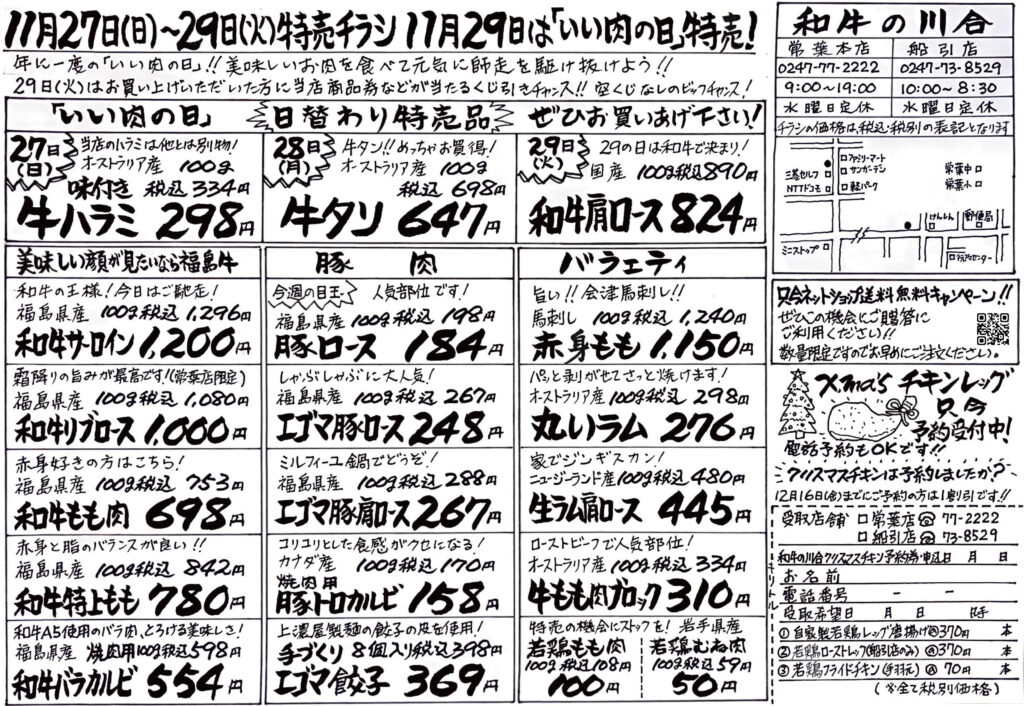 11月27日(日)〜29日(火)特売チラシ 11月29日は「いい肉の日」特売!
年に一度の「いい肉の日」!!美味しいお肉を食べて元気に師走を駆け抜けよう!!
29日(火)はお買い上げいただいた方に当店商品券などが当たるくじ引きチャンス!!空くじなしのビックチャンス!
「いい肉の日」 日替わり特売品 ぜひお買いあげ下さい!
27日(日)
当店のハラミは他とは別物!
オーストラリア産 100g
味付き 税込 334円
牛ハラミ 298円
28日(月)
牛タン!!めっちゃお買得!
オーストラリア産 100g
税込 698円
牛タン 647円
29日(火)
29の日は和牛で決まり!
国産 100g税込890円
和牛肩ロース 824円
美味しい顔が見たいなら福島牛
和牛の王様!今日はご馳走!
福島県産 100g税込 1,296円
和牛サーロイン 1,200円
霜降りの旨みが最高です!(常葉店限定)
福島県産 100g税込 1,080円
和牛リブロース 1,000円
赤身好きの方はこちら!
福島県産 100g税込 753円
和牛もも肉 698円
赤身と脂のバランスが良い!!
福島県産 100g税込 842円
和牛特上もも 780円
和牛A5使用のバラ肉、とろける美味しさ!
福島県産 焼肉用100g税込598円
和牛バラカルビ 554円
豚 肉
今週の目玉 人気部位です!
福島県産 100g税込 198円
豚ロース 184円
しゃぶしゃぶに大人気!
福島県産 100g税込 267円
エゴマ豚ロース 248円
ミルフィーユ鍋でどうぞ!
福島県産 100g税込 288円
エゴマ豚肩ロース 267円
コリコリとした食感がクセになる!
カナダ産 100g税込 170円
焼肉用
豚トロカルビ 158円
上濃屋製麺の餃子の皮を使用!
手づくり 8個入り税込398円
エゴマ餃子 369円
バラエティ
旨い!!会津馬刺し!!
馬刺し 100g税込 1,240円
赤身もも 1,150円
パッと剥がせてさっと焼けます!
オーストラリア産 100g税込 298円
丸いラム 276円
家でジンギスカン!
ニュージーランド産 100g税込 480円
生ラム肩ロース 445円
ローストビーフで人気部位!
オーストラリア産 100g税込 334円
牛もも肉ブロック 310円
特売の機会にストックを! 岩手県産
若鶏もも肉
100g税込108円
100円
若鶏むね肉
100g税込59円
50円
和牛の川合
常葉本店 船引店
0247-77-2222 0247-73-8529
9:00〜19:00 10:00〜8:30
水曜日定休 水曜日定休
チラシの価格は税込・税別の表記となります
ファミリーマート
サンガーデン
三菱セルフ
NTTドコモ
軽パーク
常葉中
常葉小
けんしん
郵便局
ミニストップ
行政センター
只今ネットショップ送料無料キャンペーン!!
ぜひこの機会にご贈答に
ご利用ください!!
数量限定ですのでお早めにご注文ください。
X'mas チキンレッグ
只今
予約受付中!
電話予約もOKです!!
クリスマスチキンは予約しましたか?
12月16日(金)までにご予約の方は1割引です!!
受取店舗 □常葉店☎77-2222
□船引店☎73-8529
キリトリ
和牛の川合クリスマスチキン予約券・申込日 月 日
お名前
電話番号 − −
受取希望日 月 日 時
①自家製若鶏レッグ唐揚げ@370円 本
②若鶏ローストレッグ(船引店のみ)@370円 本
③若鶏フライドチキン(手羽元)@70円 本
(※全て税別価格)